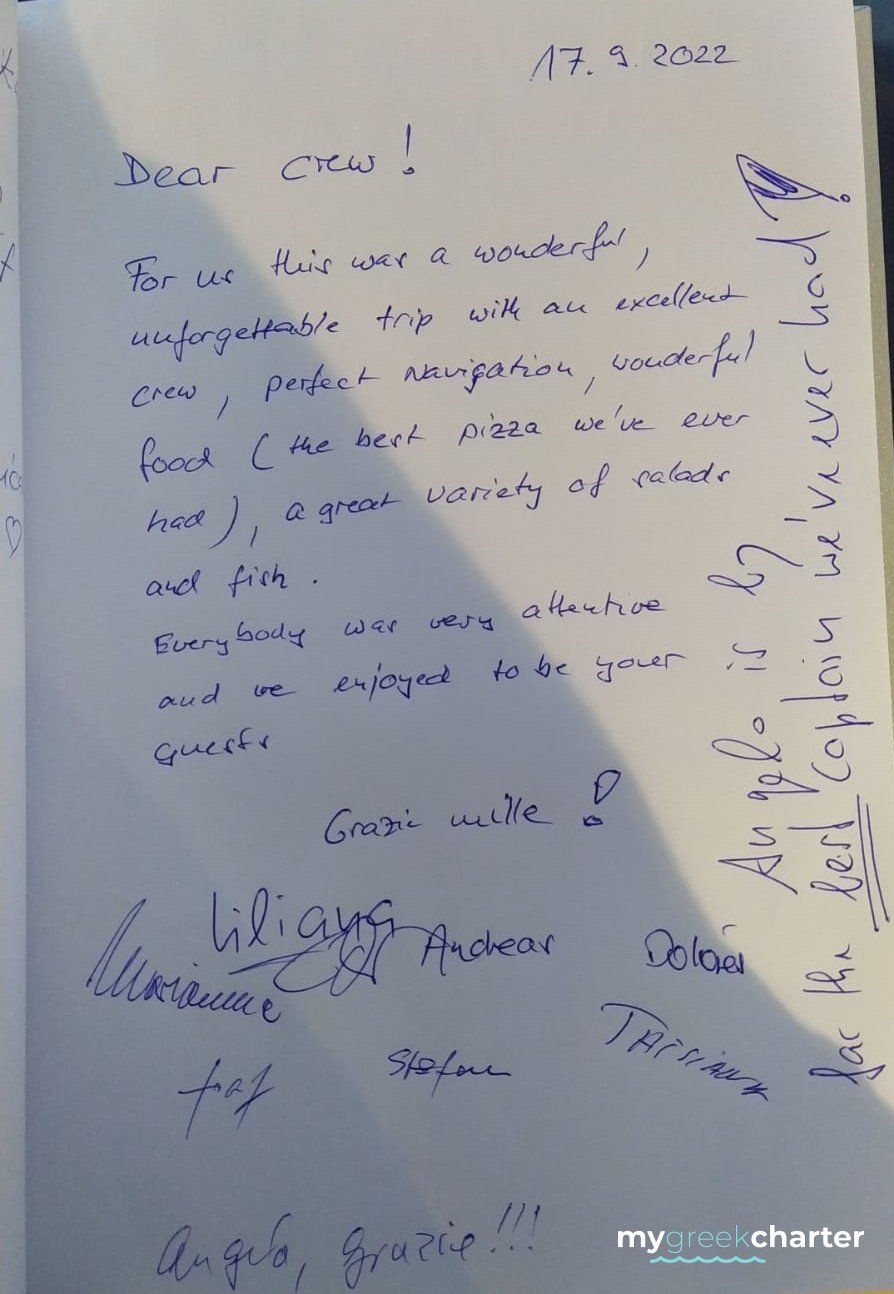 17. 9. 2022
Dear crew!
For us this was a wonderful,
unforgettable trip with an excellent
crew, perfect navigation, wonderful
food (the best pizza we've ever
had), a great variety of salads
and fish.
Everybody was very attentive
and we enjoyed to be your
guests
Grazie mille!
Liliana
Andreas
Dolores
Marianne
Stefan
Angelo, grazie!!!
Angelo is by
far the best captain we've ever had!
mygreekcharter